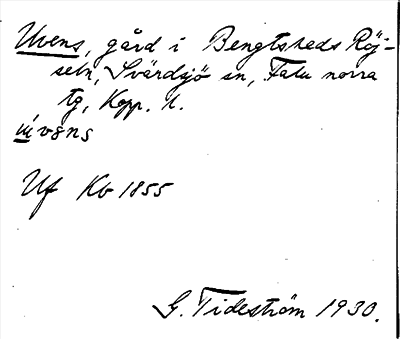 Uvens, gård i Bengtsheds Röj-
seln, Svärdsjö sn, Falu norra
tg, Kopp. l.
úvens
Uf Kb 1855
G. Tideström 1930.